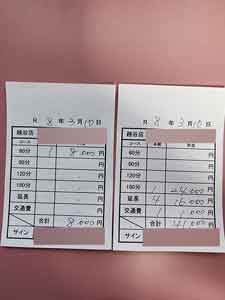 R 8 年 3 月 10 日
越谷店
コース
60分 1 8.000 円
90分 円
120分 円
180分 円
延長 円
交通費 円
合計 8.000 円
サイン
R 8 年 3 月 10 日
コース 本数 料金
60分 円
90分 円
120分 円
180分 1 24.000 円
延長 4 16.000 円
交通費 1 1.000 円
合計 41.000 円
サイン